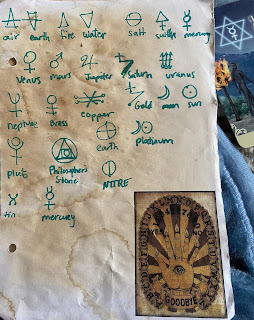 air earth fire water salt sulfer mercury
Venus mars Jupiter Saturn uranus
neptune Brass copper Gold moon sun
earth platinum
pluto Philosophers Stone NITRE
tin mercury
YES NO
GOODBYE